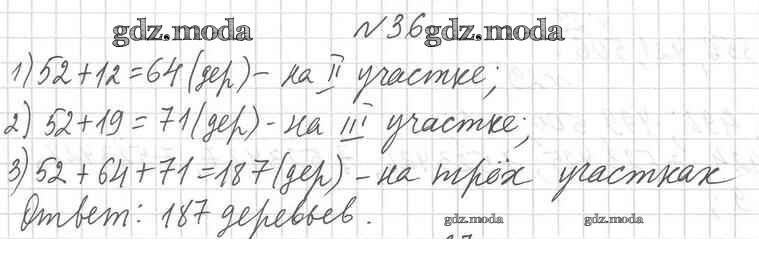 gdz.moda №36 gdz.moda
1) 52+12=64(дер) - на II участке;
2) 52+19=71(дер) - на III участке;
3) 52+64+71=187(дер) - на трёх участках
Ответ: 187 деревьев.
gdz.moda gdz.moda